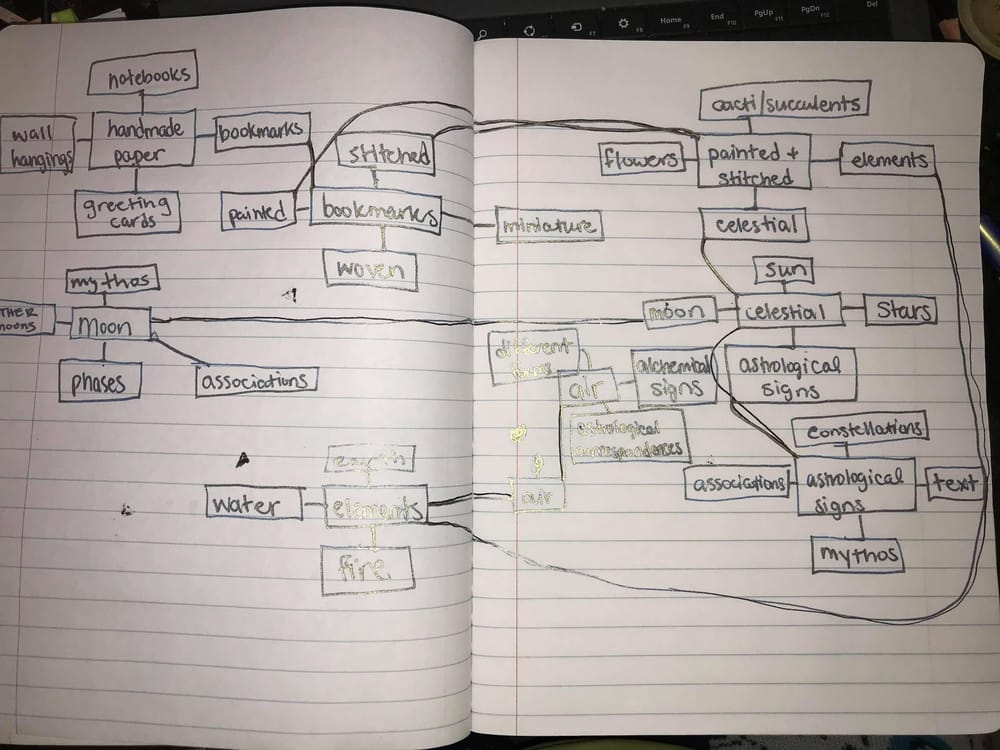 Home
End
PgUp
PgDn
Del
F7
F8
F9
F10
F11
F12
notebooks
wall
hangings
handmade
paper
bookmarks
greeting
cards
stitched
painted
bookmarks
miniature
woven
mythos
moons
Moon
phases
associations
earth
water
elements
air
fire
cacti/succulents
flowers
painted +
stitched
elements
celestial
sun
moon
celestial
Stars
different
air
alchemical
signs
astrological
signs
astrological
correspondences
constellations
associations
astrological
signs
text
mythos